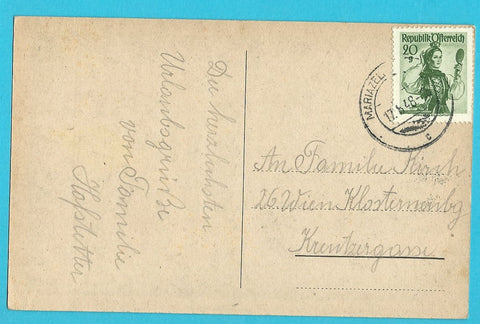 Republik Österreich
20
g
MARIAZELL
17.
48
c
Die herzlichsten
Urlaubsgrüße
von Familie
Hofstätter
An Familie Kirsch
26. Wien Klosterneubg
Kreutzergasse